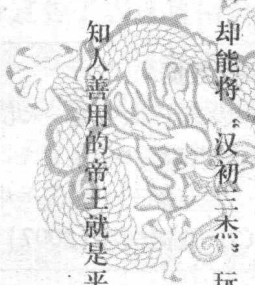 却能将“汉初三杰”玩
知人善用的帝王就是